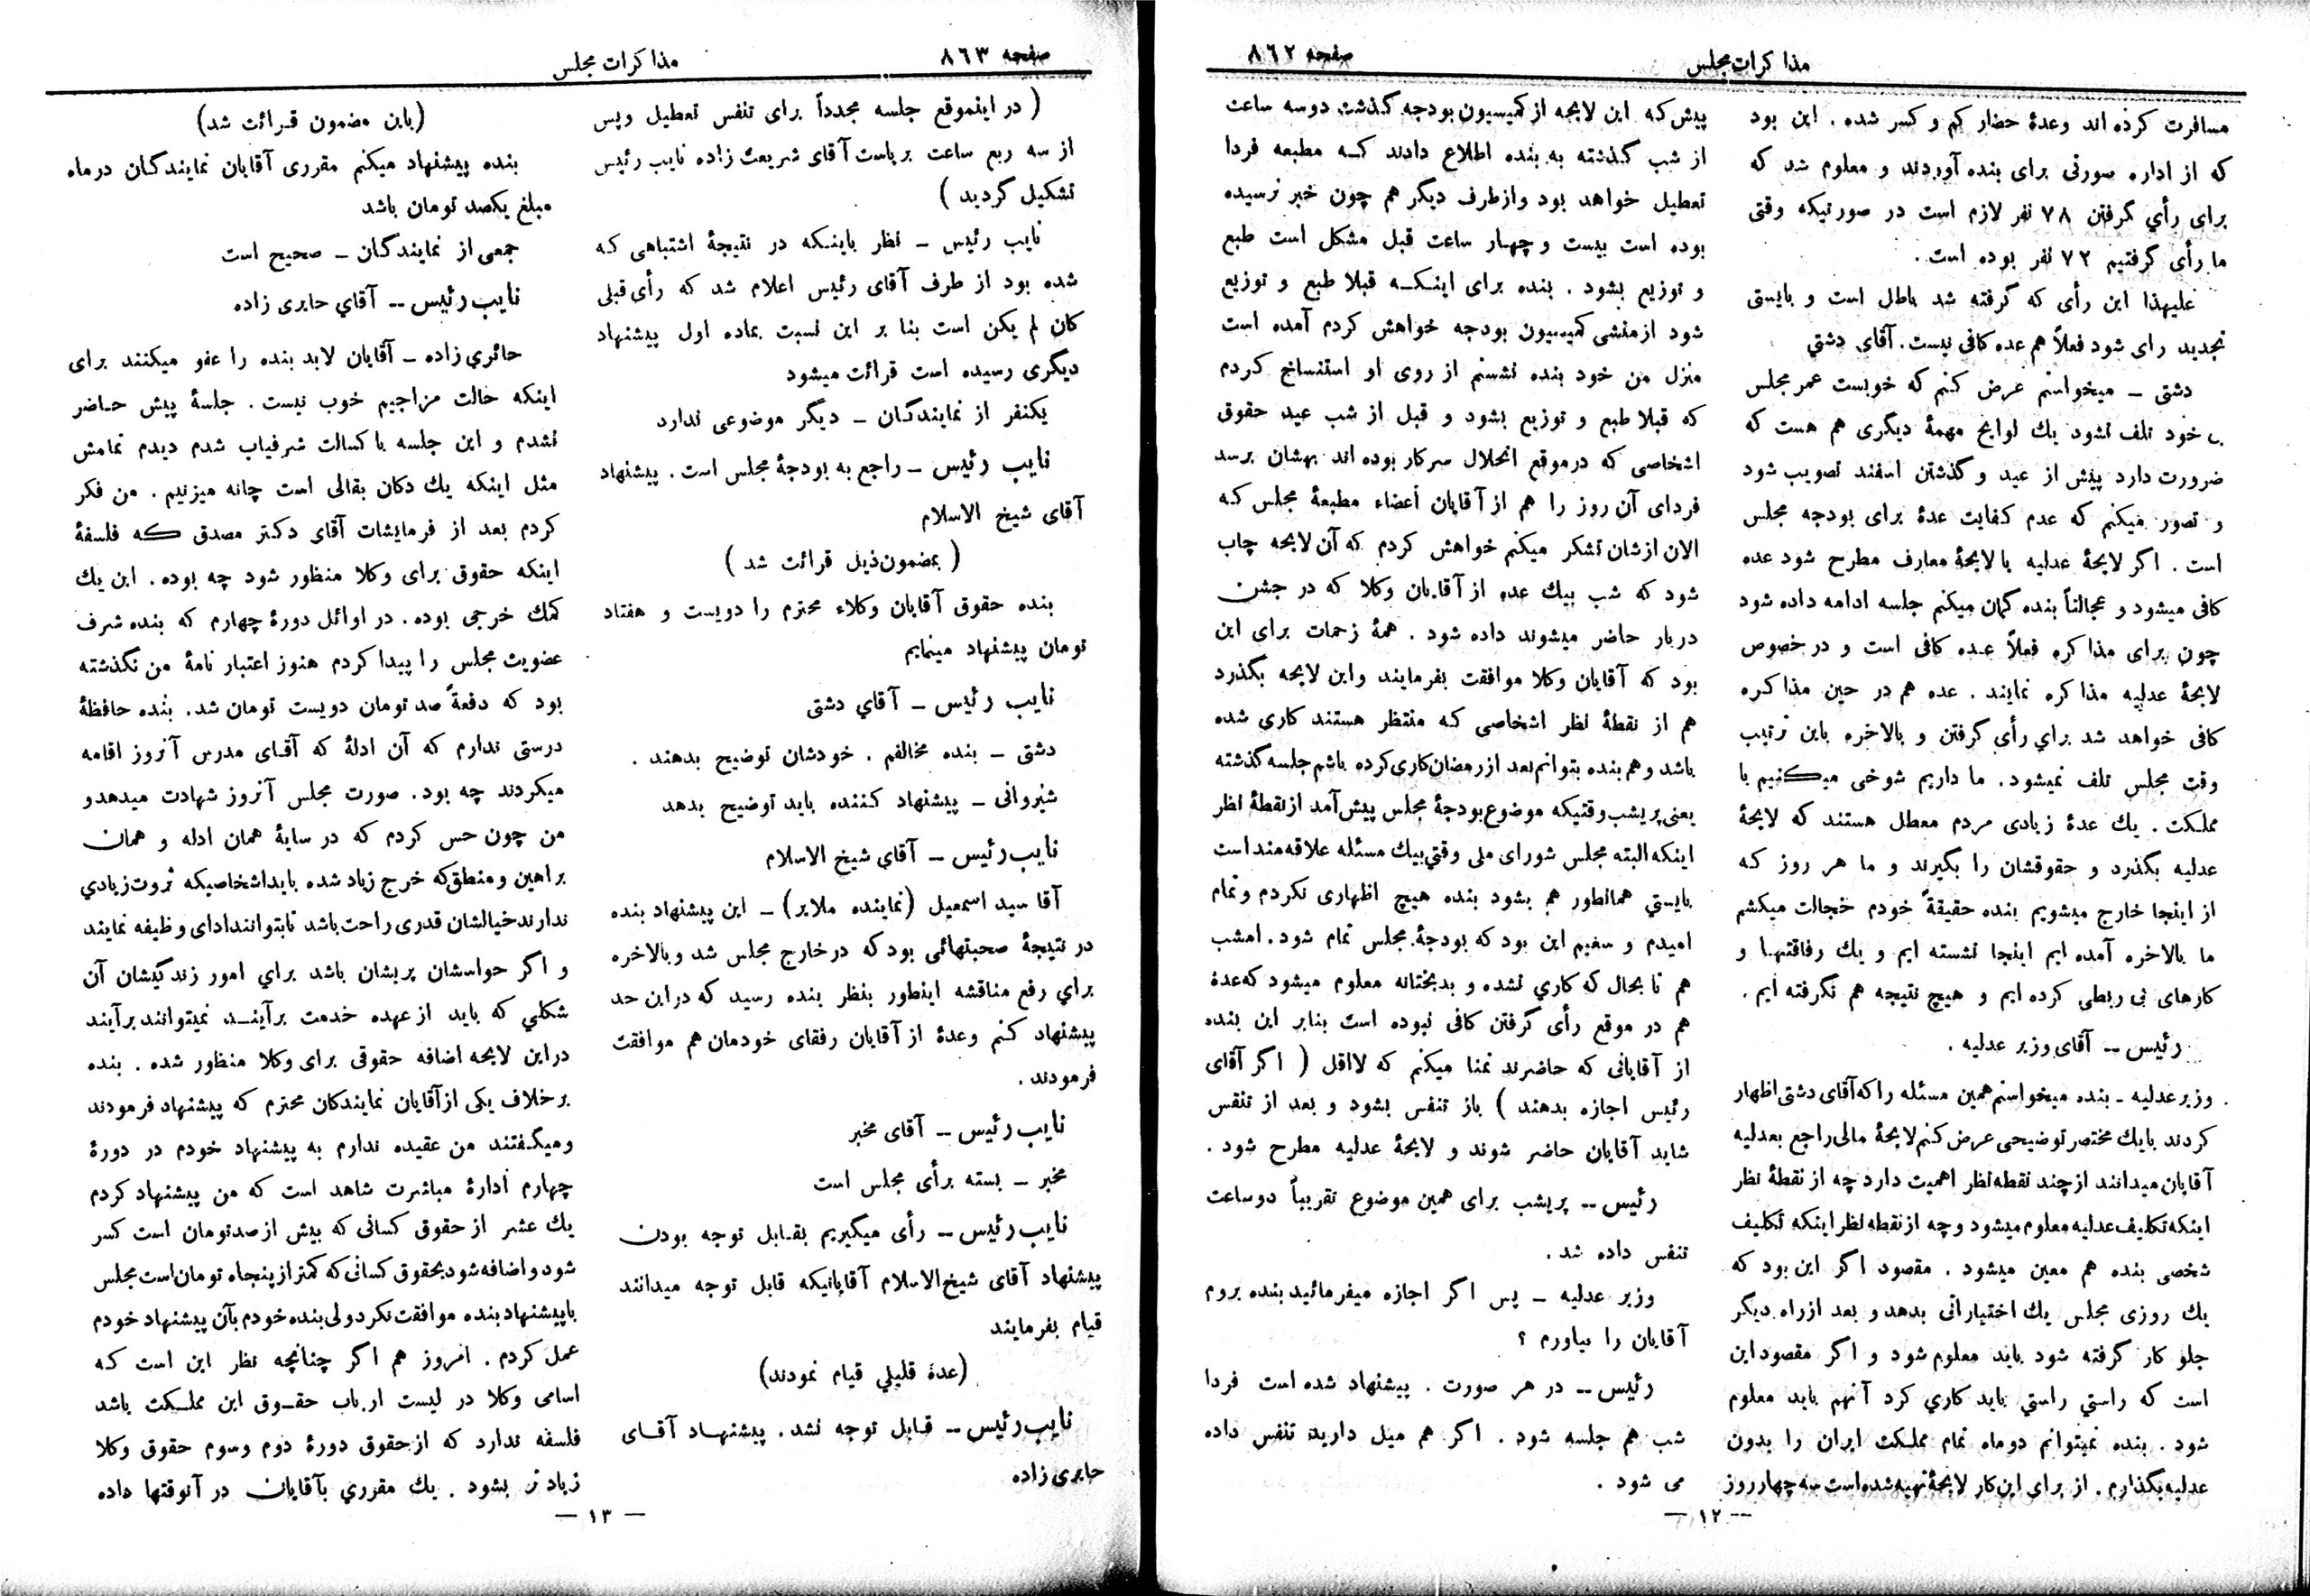 مذاکرات مجلس
صفحه ٨٦٢
مسافرت کرده اند وعدهٔ حضار کم و کسر شده . این بود
که از اداره صورتی برای بنده آوردند و معلوم شد که
برای رأي گرفتن ٧٨ نفر لازم است در صورتیکه وقتی
ما رأی گرفتیم ٧٢ نفر بوده است .
علیهذا این رأی که گرفته شد باطل است و بایستی
تجدید رای شود فعلاً هم عده کافی نیست . آقای دشتي
دشتی ـ میخواستم عرض کنم که خوبست عمر مجلس
بی خود تلف نشود یك لوایح مهمهٔ دیگری هم هست که
ضرورت دارد پیش از عید و گذشتن اسفند تصویب شود
و تصور میکنم که عدم کفایت عدهٔ برای بودجه مجلس
است . اگر لایحهٔ عدلیه یا لایحهٔ معارف مطرح شود عده
کافی میشود و عجالتاً بنده گمان میکنم جلسه ادامه داده شود
چون برای مذاکره فعلاً عده کافی است و در خصوص
لایحهٔ عدلیه مذاکره نمایند . عده هم در حین مذاکره
کافی خواهد شد براي رأی گرفتن و بالاخره باین ترتیب
وقت مجلس تلف نمیشود . ما داریم شوخی میکنیم با
مملکت . یك عدهٔ زیادی مردم معطل هستند که لایحهٔ
عدلیه بگذرد و حقوقشان را بگیرند و ما هر روز که
از اینجا خارج میشویم بنده حقیقةً خودم خجالت میکشم
ما بالاخره آمده ایم اینجا نشسته ایم و یك رفاقتها و
کارهای بی ربطی کرده ایم و هیچ نتیجه هم نگرفته ایم .
رئیس ــ آقای وزیر عدلیه .
وزیر عدلیه ـ بنده میخواستم همین مسئله را که آقای دشتی اظهار
کردند با یك مختصر توضیحی عرض کنم لایحهٔ مالی راجع بعدلیه
آقایان میدانند از چند نقطه نظر اهمیت دارد چه از نقطهٔ نظر
اینکه تکلیف عدلیه معلوم میشود و چه از نقطه نظر اینکه تکلیف
شخصی بنده هم معین میشود . مقصود اگر این بود که
یك روزی مجلس یك اختیاراتی بدهد و بعد از راه دیگر
جلو کار گرفته شود باید معلوم شود و اگر مقصود این
است که راستي راستي باید کاري کرد آنهم باید معلوم
شود . بنده نمیتوانم دو ماه تمام مملکت ایران را بدون
عدلیه بگذارم . از برای این کار لایحهٔ تهیه شده است سه چهار روز
پیش که این لایحه از کمیسیون بودجه گذشت دوسه ساعت
از شب گذشته به بنده اطلاع دادند که مطبعه فردا
تعطیل خواهد بود وازطرف دیگر هم چون خبر نرسیده
بوده است بیست و چهار ساعت قبل مشکل است طبع
و توزیع بشود . بنده برای اینکه قبلا طبع و توزیع
شود ازمنشی کمیسیون بودجه خواهش کردم آمده است
منزل من خود بنده نشستم از روی او استنساخ کردم
که قبلا طبع و توزیع بشود و قبل از شب عید حقوق
اشخاصی که درموقع انحلال سرکار بوده اند بهشان برسد
فردای آن روز را هم از آقایان أعضاء مطبعهٔ مجلس که
الان ازشان تشکر میکنم خواهش کردم که آن لایحه چاپ
شود که شب بیك عده از آقایان وکلا که در جشن
دربار حاضر میشوند داده شود . همهٔ زحمات برای این
بود که آقایان وکلا موافقت بفرمایند واین لایحه بگذرد
هم از نقطهٔ نظر اشخاصی که منتظر هستند کاری شده
باشد و هم بنده بتوانم بعد از رمضان کاری کرده باشم جلسه گذشته
یعنی پریشب وقتیکه موضوع بودجهٔ مجلس پیش آمد از نقطهٔ نظر
اینکه البته مجلس شورای ملی وقتي بیك مسئله علاقه مند است
بایستي همانطور هم بشود بنده هیچ اظهاری نکردم و تمام
امیدم و سعیم این بود که بودجهٔ مجلس تمام شود . امشب
هم تا بحال که کاري نشده و بدبختانه معلوم میشود که عدهٔ
هم در موقع رأی گرفتن کافی نبوده است بنابر این بنده
از آقایانی که حاضرند تمنا میکنم که لااقل ( اگر آقای
رئیس اجازه بدهند ) باز تنفس بشود و بعد از تنفس
شاید آقایان حاضر شوند و لایحهٔ عدلیه مطرح شود .
رئیس ــ پریشب برای همین موضوع تقریباً دو ساعت
تنفس داده شد .
وزیر عدلیه ـ پس اگر اجازه میفرمائید بنده بروم
آقایان را بیاورم ؟
رئیس ــ در هر صورت . پیشنهاد شده است فردا
شب هم جلسه شود . اگر هم میل دارید تنفس داده
می شود .
ــ ١٢ ــ
صفحه ٨٦٣
مذاکرات مجلس
( در اینموقع جلسه مجدداً برای تنفس تعطیل و پس
از سه ربع ساعت بریاست آقای شریعت زاده نایب رئیس
تشکیل گردید )
نایب رئیس ـ نظر باینکه در نتیجهٔ اشتباهی که
شده بود از طرف آقای رئیس اعلام شد که رأی قبلی
کان لم یکن است بنا بر این نسبت بماده اول پیشنهاد
دیگری رسیده است قرائت میشود
یکنفر از نمایندگان ـ دیگر موضوعی ندارد
نایب رئیس ـ راجع به بودجهٔ مجلس است . پیشنهاد
آقای شیخ الاسلام
( بمضمون ذیل قرائت شد )
بنده حقوق آقایان وکلاء محترم را دویست و هفتاد
تومان پیشنهاد مینمایم
نایب رئیس ـ آقاي دشتی
دشتی ـ بنده مخالفم . خودشان توضیح بدهند .
شیروانی ـ پیشنهاد کننده باید توضیح بدهد
نایب رئیس ـ آقاي شیخ الاسلام
آقا سید اسمعیل (نماینده ملایر) ـ این پیشنهاد بنده
در نتیجهٔ صحبتهائی بود که در خارج مجلس شد و بالاخره
براي رفع مناقشه اینطور بنظر بنده رسید که در این حد
پیشنهاد کنم وعدهٔ از آقایان رفقای خودمان هم موافقت
فرمودند .
نایب رئیس ــ آقای مخبر
مخبر ـ بسته برأی مجلس است
نایب رئیس ــ رأی میگیریم بقابل توجه بودن
پیشنهاد آقای شیخ الاسلام آقایانیکه قابل توجه میدانند
قیام بفرمایند
(عدهٔ قلیلي قیام نمودند)
نایب رئیس ــ قابل توجه نشد . پیشنهاد آقای
حایری زاده
(باین مضمون قرائت شد)
بنده پیشنهاد میکنم مقرری آقایان نمایندگان در ماه
مبلغ یکصد تومان باشد
جمعی از نمایندگان ـ صحیح است
نایب رئیس ــ آقاي حایری زاده
حائري زاده ـ آقایان لابد بنده را عفو میکنند برای
اینکه حالت مزاجیم خوب نیست . جلسهٔ پیش حاضر
نشدم و این جلسه با کسالت شرفیاب شدم دیدم تمامش
مثل اینکه یك دکان بقالی است چانه میزنیم . من فکر
کردم بعد از فرمایشات آقای دکتر مصدق که فلسفهٔ
اینکه حقوق برای وکلا منظور شود چه بوده . این یك
کمك خرجی بوده . در اوائل دورهٔ چهارم که بنده شرف
عضویت مجلس را پیدا کردم هنوز اعتبار نامهٔ من نگذشته
بود که دفعةً صد تومان دویست تومان شد . بنده حافظهٔ
درستی ندارم که آن ادلهٔ که آقای مدرس آنروز اقامه
میکردند چه بود . صورت مجلس آنروز شهادت میدهد و
من چون حس کردم که در سایهٔ همان ادله و همان
براهین و منطق که خرج زیاد شده باید اشخاصیکه ثروت زیادي
ندارند خیالشان قدری راحت باشد تا بتوانند ادای وظیفه نمایند
و اگر حواسشان پریشان باشد براي امور زندگیشان آن
شکلي که باید از عهده خدمت برآیند نمیتوانند برآیند
در این لایحه اضافه حقوقی برای وکلا منظور شده . بنده
برخلاف یکی از آقایان نمایندکان محترم که پیشنهاد فرمودند
ومیگفتند من عقیده ندارم به پیشنهاد خودم در دورهٔ
چهارم ادارهٔ مباشرت شاهد است که من پیشنهاد کردم
یك عشر از حقوق کسانی که بیش از صد تومان است کسر
شود و اضافه شود بحقوق کسانی که کمتر از پنجاه تومان است مجلس
با پیشنهاد بنده موافقت نکرد ولی بنده خودم بآن پیشنهاد خودم
عمل کردم . امروز هم اگر چنانچه نظر این است که
اسامی وکلا در لیست ارباب حقوق این مملکت باشد
فلسفه ندارد که از حقوق دورهٔ دوم وسوم حقوق وکلا
زیادتر بشود . یك مقرري بآقایان در آنوقتها داده
ــ ١٣ ــ